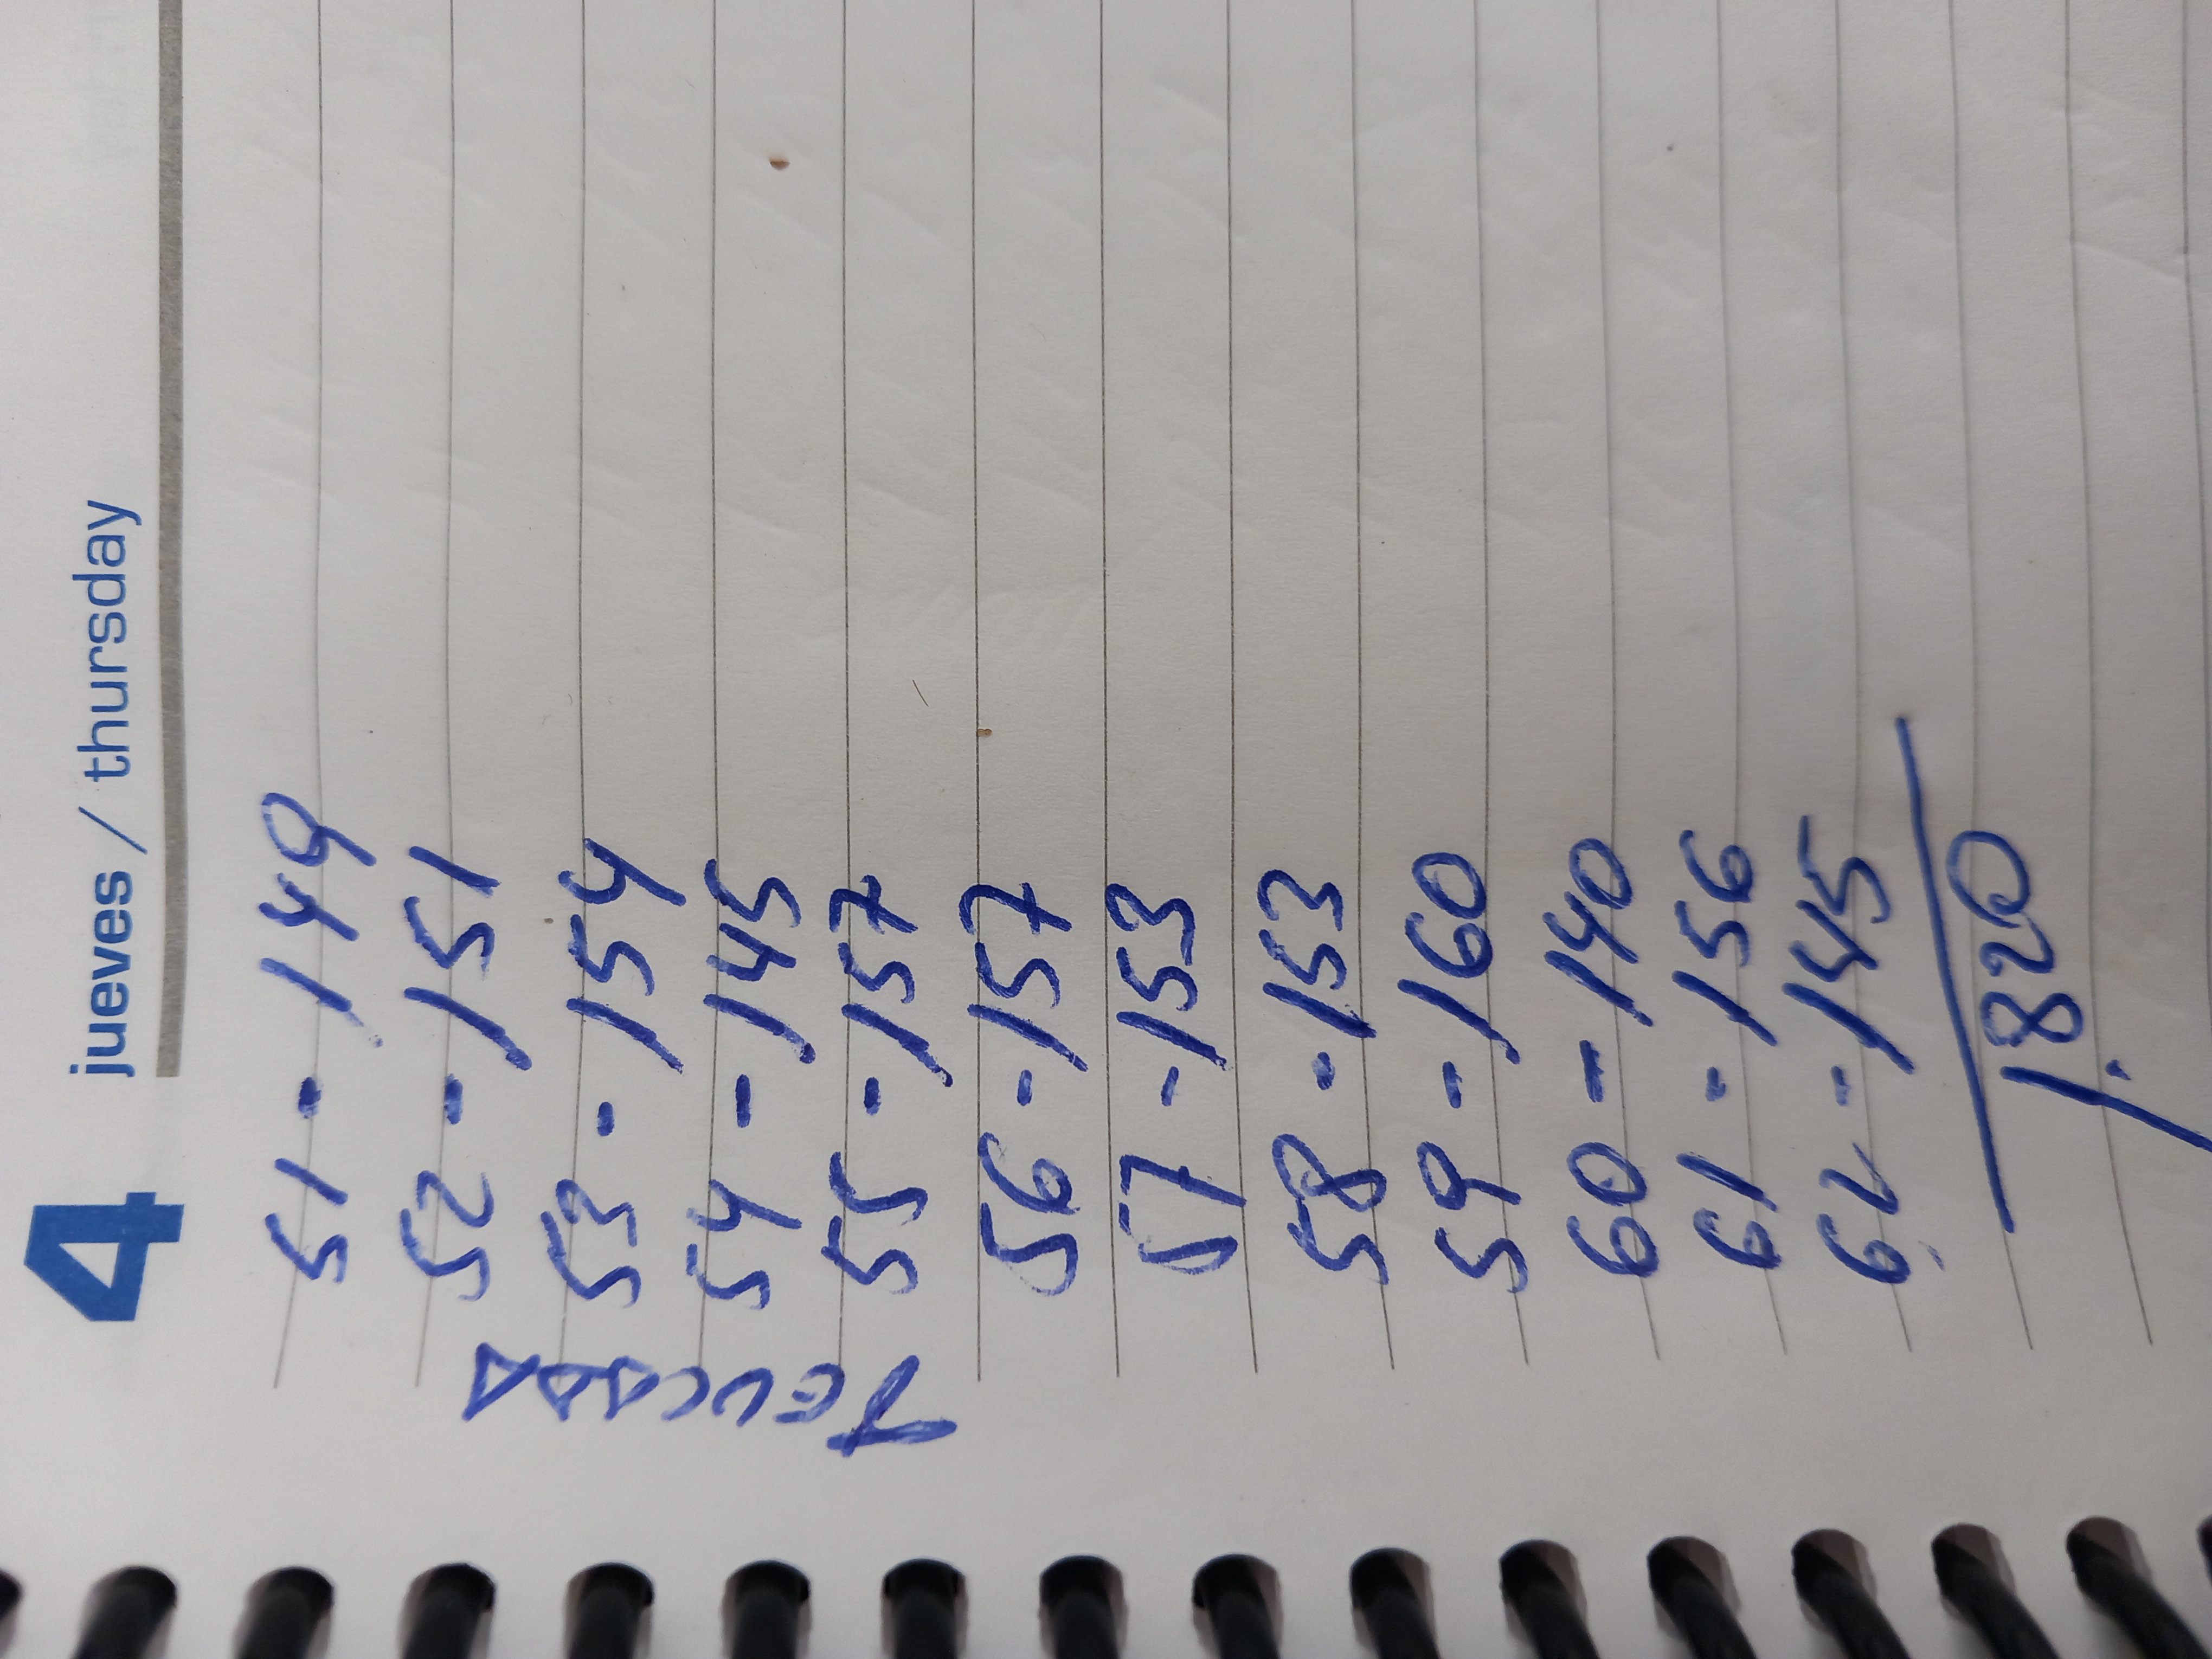 4 jueves / thursday
51 - 149
52 - 151
53 - 154
54 - 145
55 - 157
56 - 157
57 - 153
58 - 153
59 - 160
60 - 140
61 - 156
62 - 145
1.820